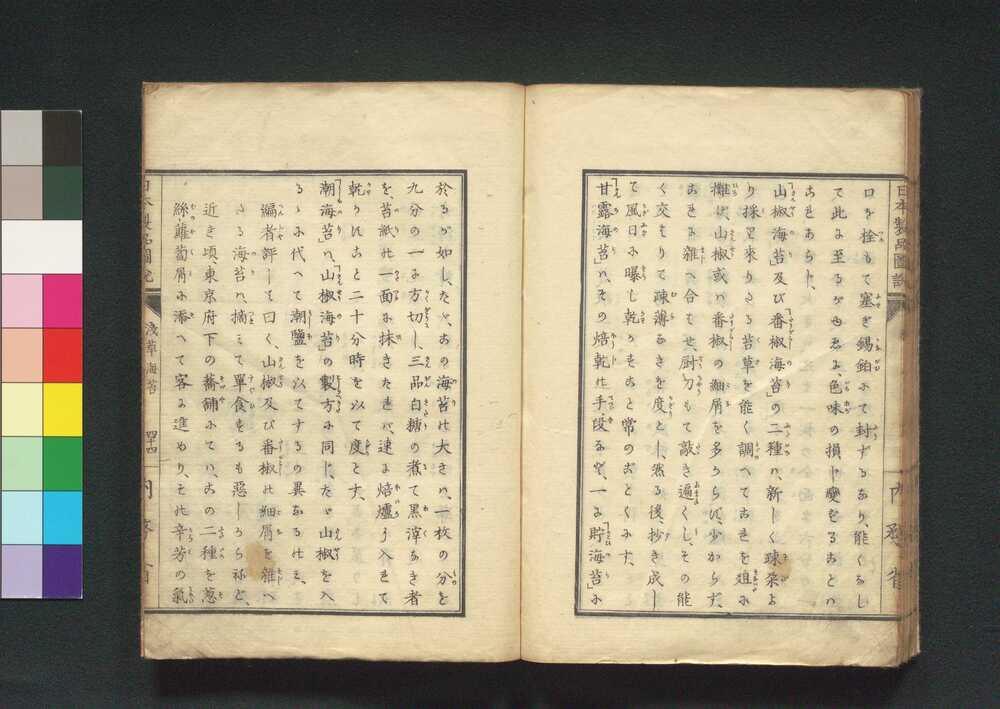 日本製品圖説
内務省
口を栓もて塞ぎ錫鉑にて封ずるあり、能くかし
て此に至るがゆゑに、色味の損じ變ずることハ
あらざらし、
「山椒海苔」及び「番椒海苔」の二種ハ、新しく疎朶よ
り採り來りたる苔草を能く調へてこれを俎に
攤げ、山椒或ハ番椒の細屑を多からず、少からず、
これに雜へ合せて厨刀もて敲き遍くし、その能
く交はりて疎薄なきを度とし、然る後、抄き成し
て風日に曝し乾かすこと常のごとくにす、
「甘露海苔」ハ、その焙乾の手段など、一に「貯海苔」に
於るが如し、たゞこの海苔の大さハ、一枚の分を
九分の一に方切し、三品白糖の煮て黒滓なき者
を、苔紙の一面に抹きたれバ、速に焙爐に入れて
乾かすこと二十分時を以て度とす、
「潮海苔」ハ、「山椒海苔」の製方に同じ、たゞ山椒を入
るゝに代へて潮鹽を以てするの異あるのミ、
編者評して曰く、山椒及び番椒の細屑を雜へ
たる海苔ハ、摘ミて單食するも惡しからねど、
近き頃、東京府下の蕎鋪にてハ、この二種を葱
絲、蘿蔔屑に添へて客に進めり、その辛芳の氣
日本製品圖説
淺草海苔
四十四
内務省